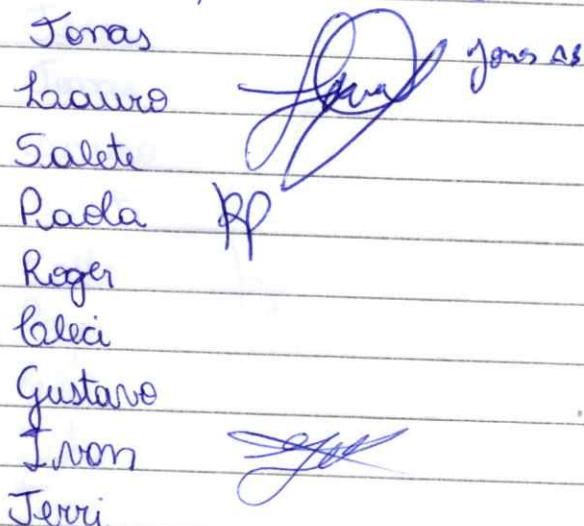 Jonas
Lauro
Salete
Paola RP
Roger
Cleci
Gustavo
Ivon
Jerri